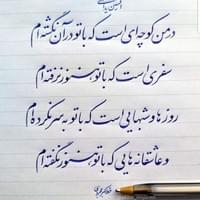 در من کوچه‌ای است که با تو در آن نگشته‌ام
سفری است که با تو هنوز نرفته‌ام
روزها و شبهایی است که با تو به سر نکرده‌ام
و عاشقانه هایی که با تو هنوز نگفته‌ام